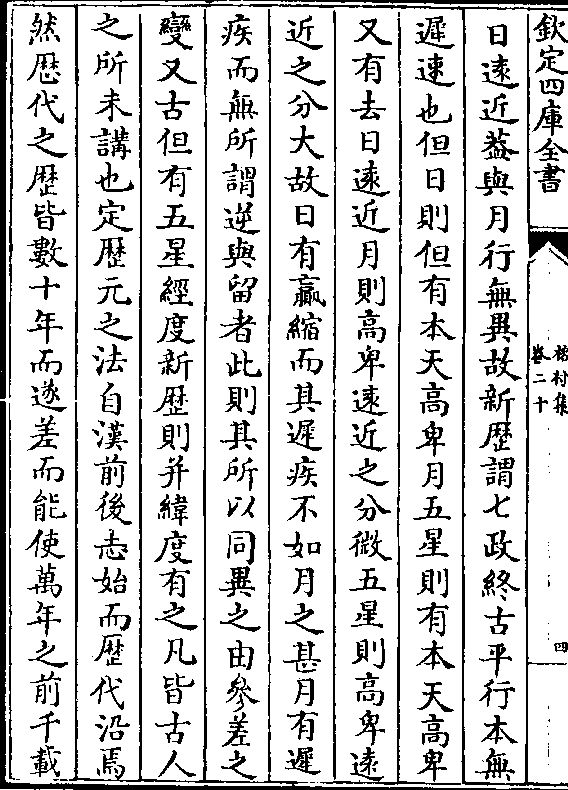 欽定四庫全書
榕村集
卷二十
四
日逺近葢與月行無異故新歴謂七政終古平行本無
遲速也但日則但有本天高卑月五星則有本天高卑
又有去日逺近月則高卑逺近之分微五星則高卑逺
近之分大故日有贏縮而其遲疾不如月之甚月有遲
疾而無所謂逆與留者此則其所以同異之由參差之
變又古但有五星經度新歴則并緯度有之凡皆古人
之所未講也定歴元之法自漢前後志始而歴代沿焉
然歴代之歴皆數十年而遂差而能使萬年之前千載